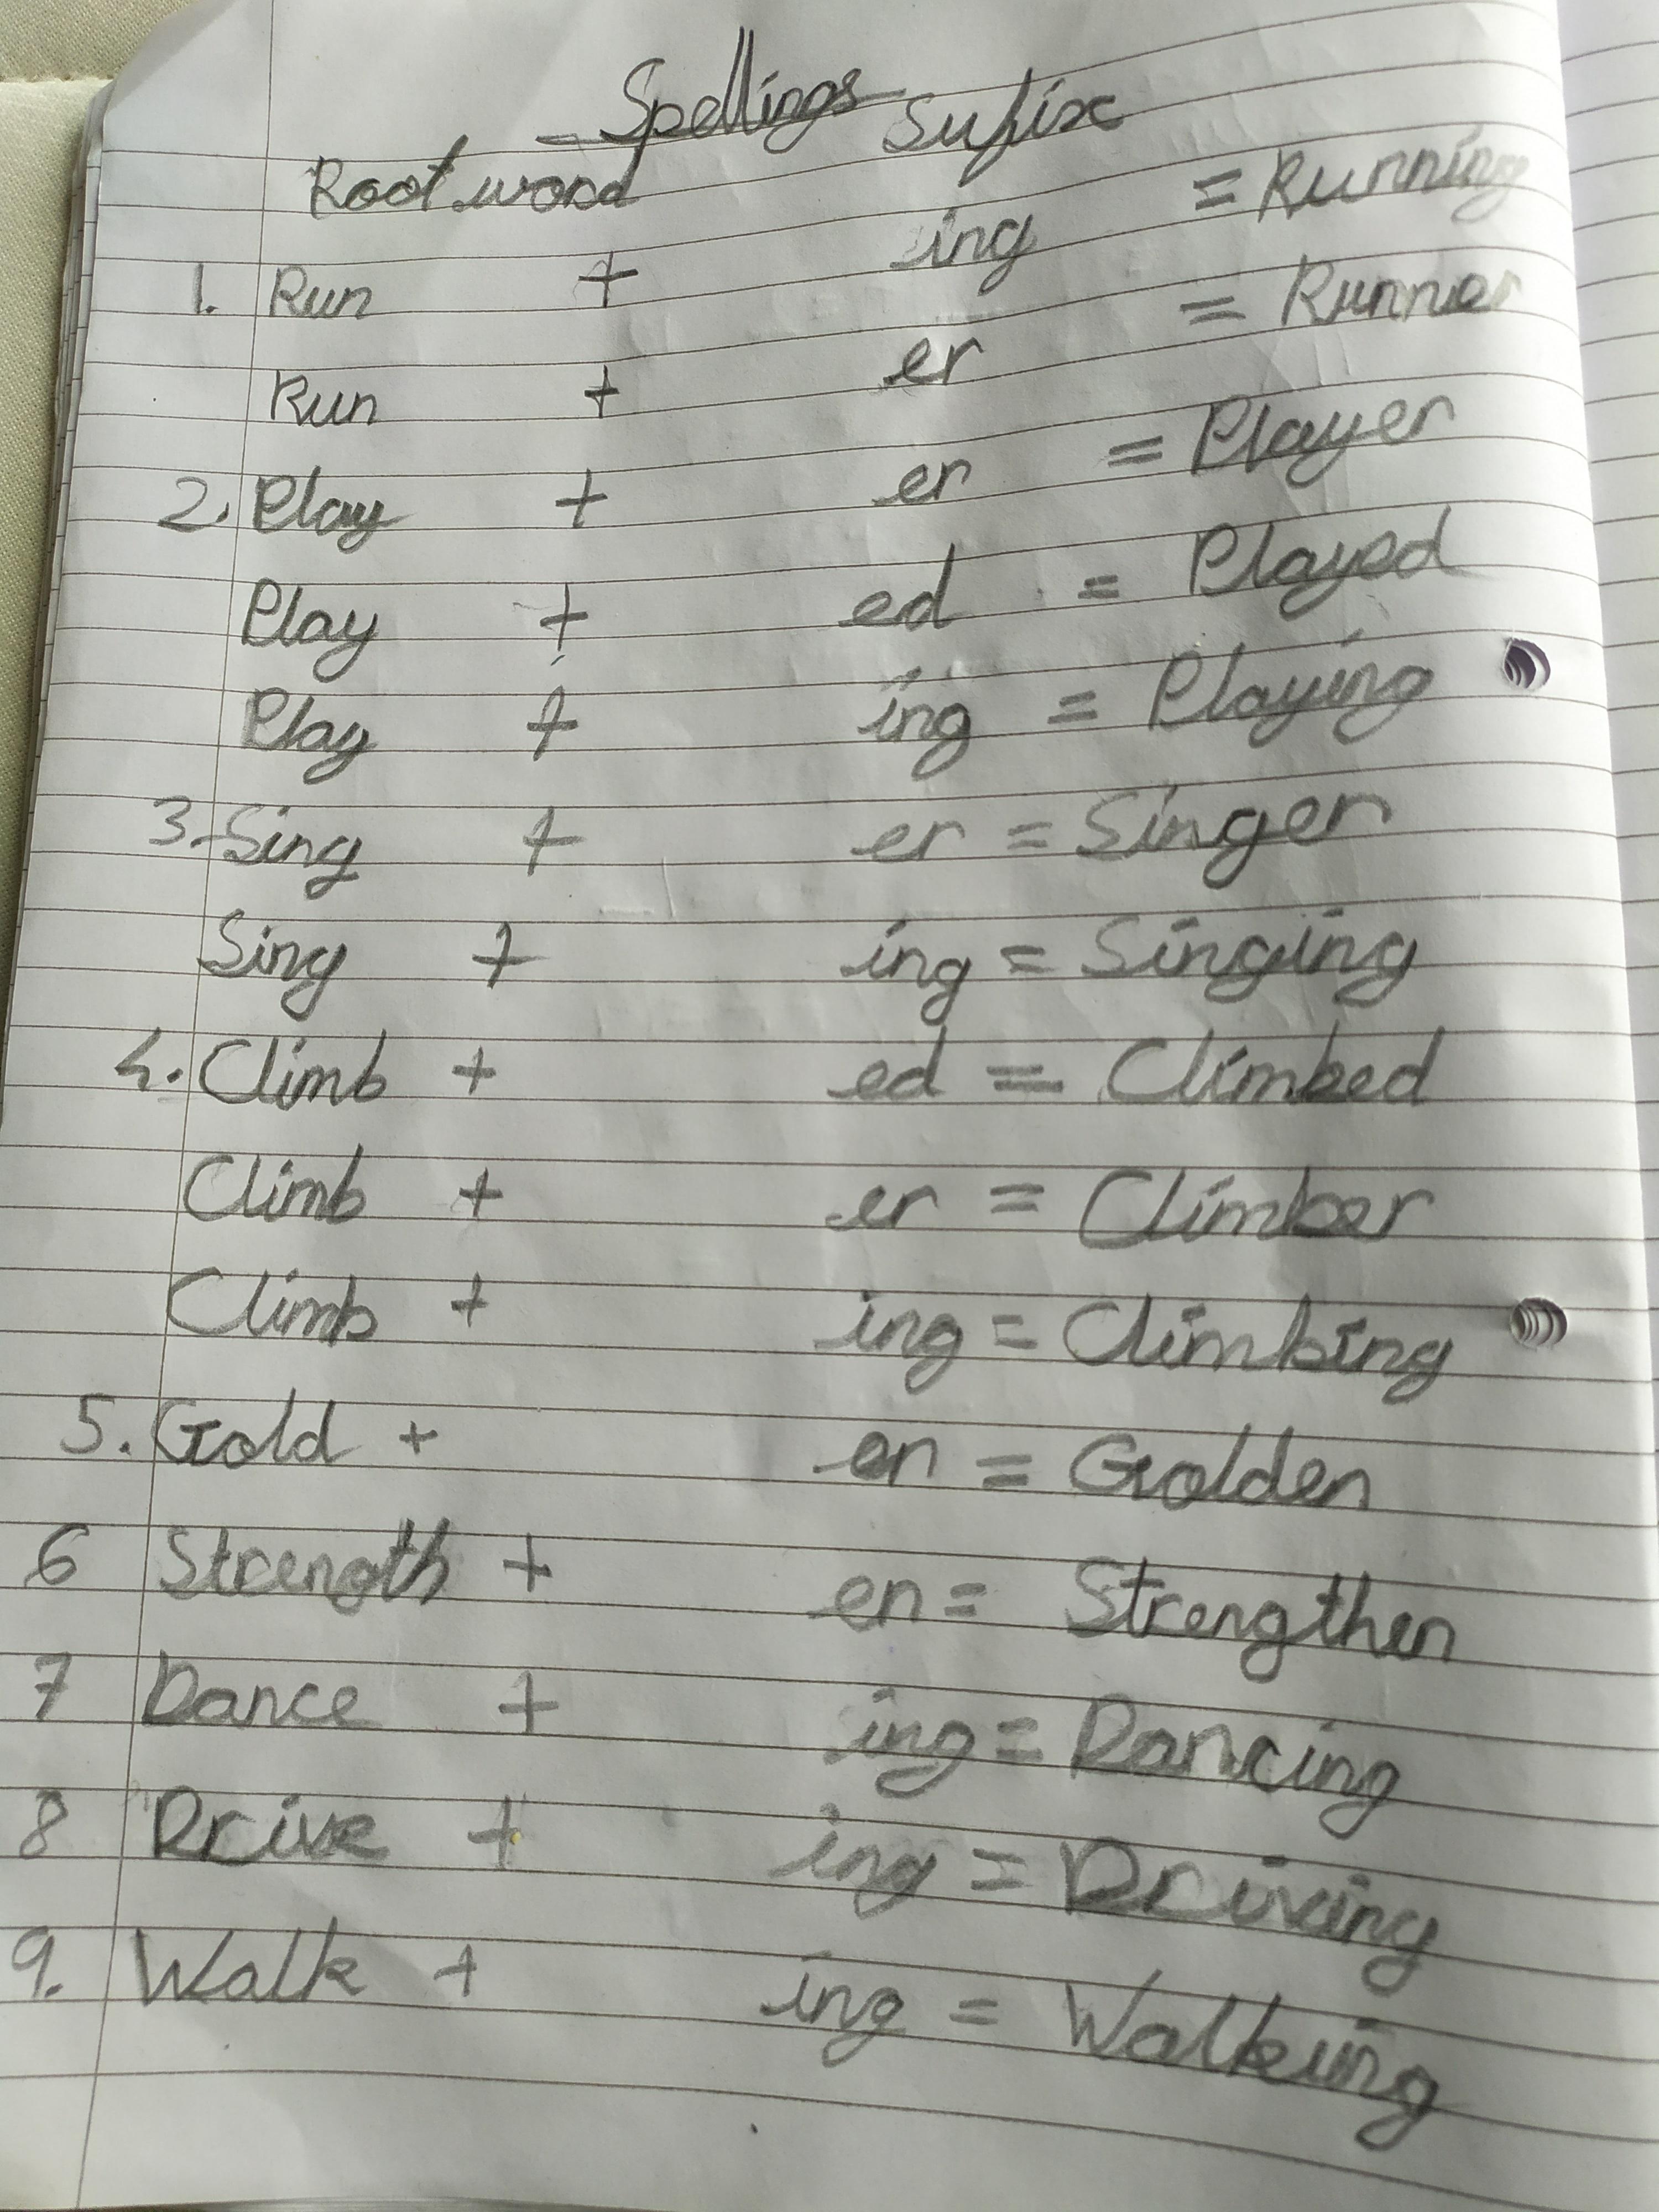 Spellings
Root word Sufix
1. Run + ing = Running
Run + er = Runner
2. Play + er = Player
Play + ed = Played
Play + ing = Playing
3. Sing + er = Singer
Sing + ing = Singing
4. Climb + ed = Climbed
Climb + er = Climber
Climb + ing = Climbing
5. Gold + en = Golden
6 Strength + en = Strengthen
7 Dance + ing = Dancing
8 Drive + ing = Driving
9. Walk + ing = Walking